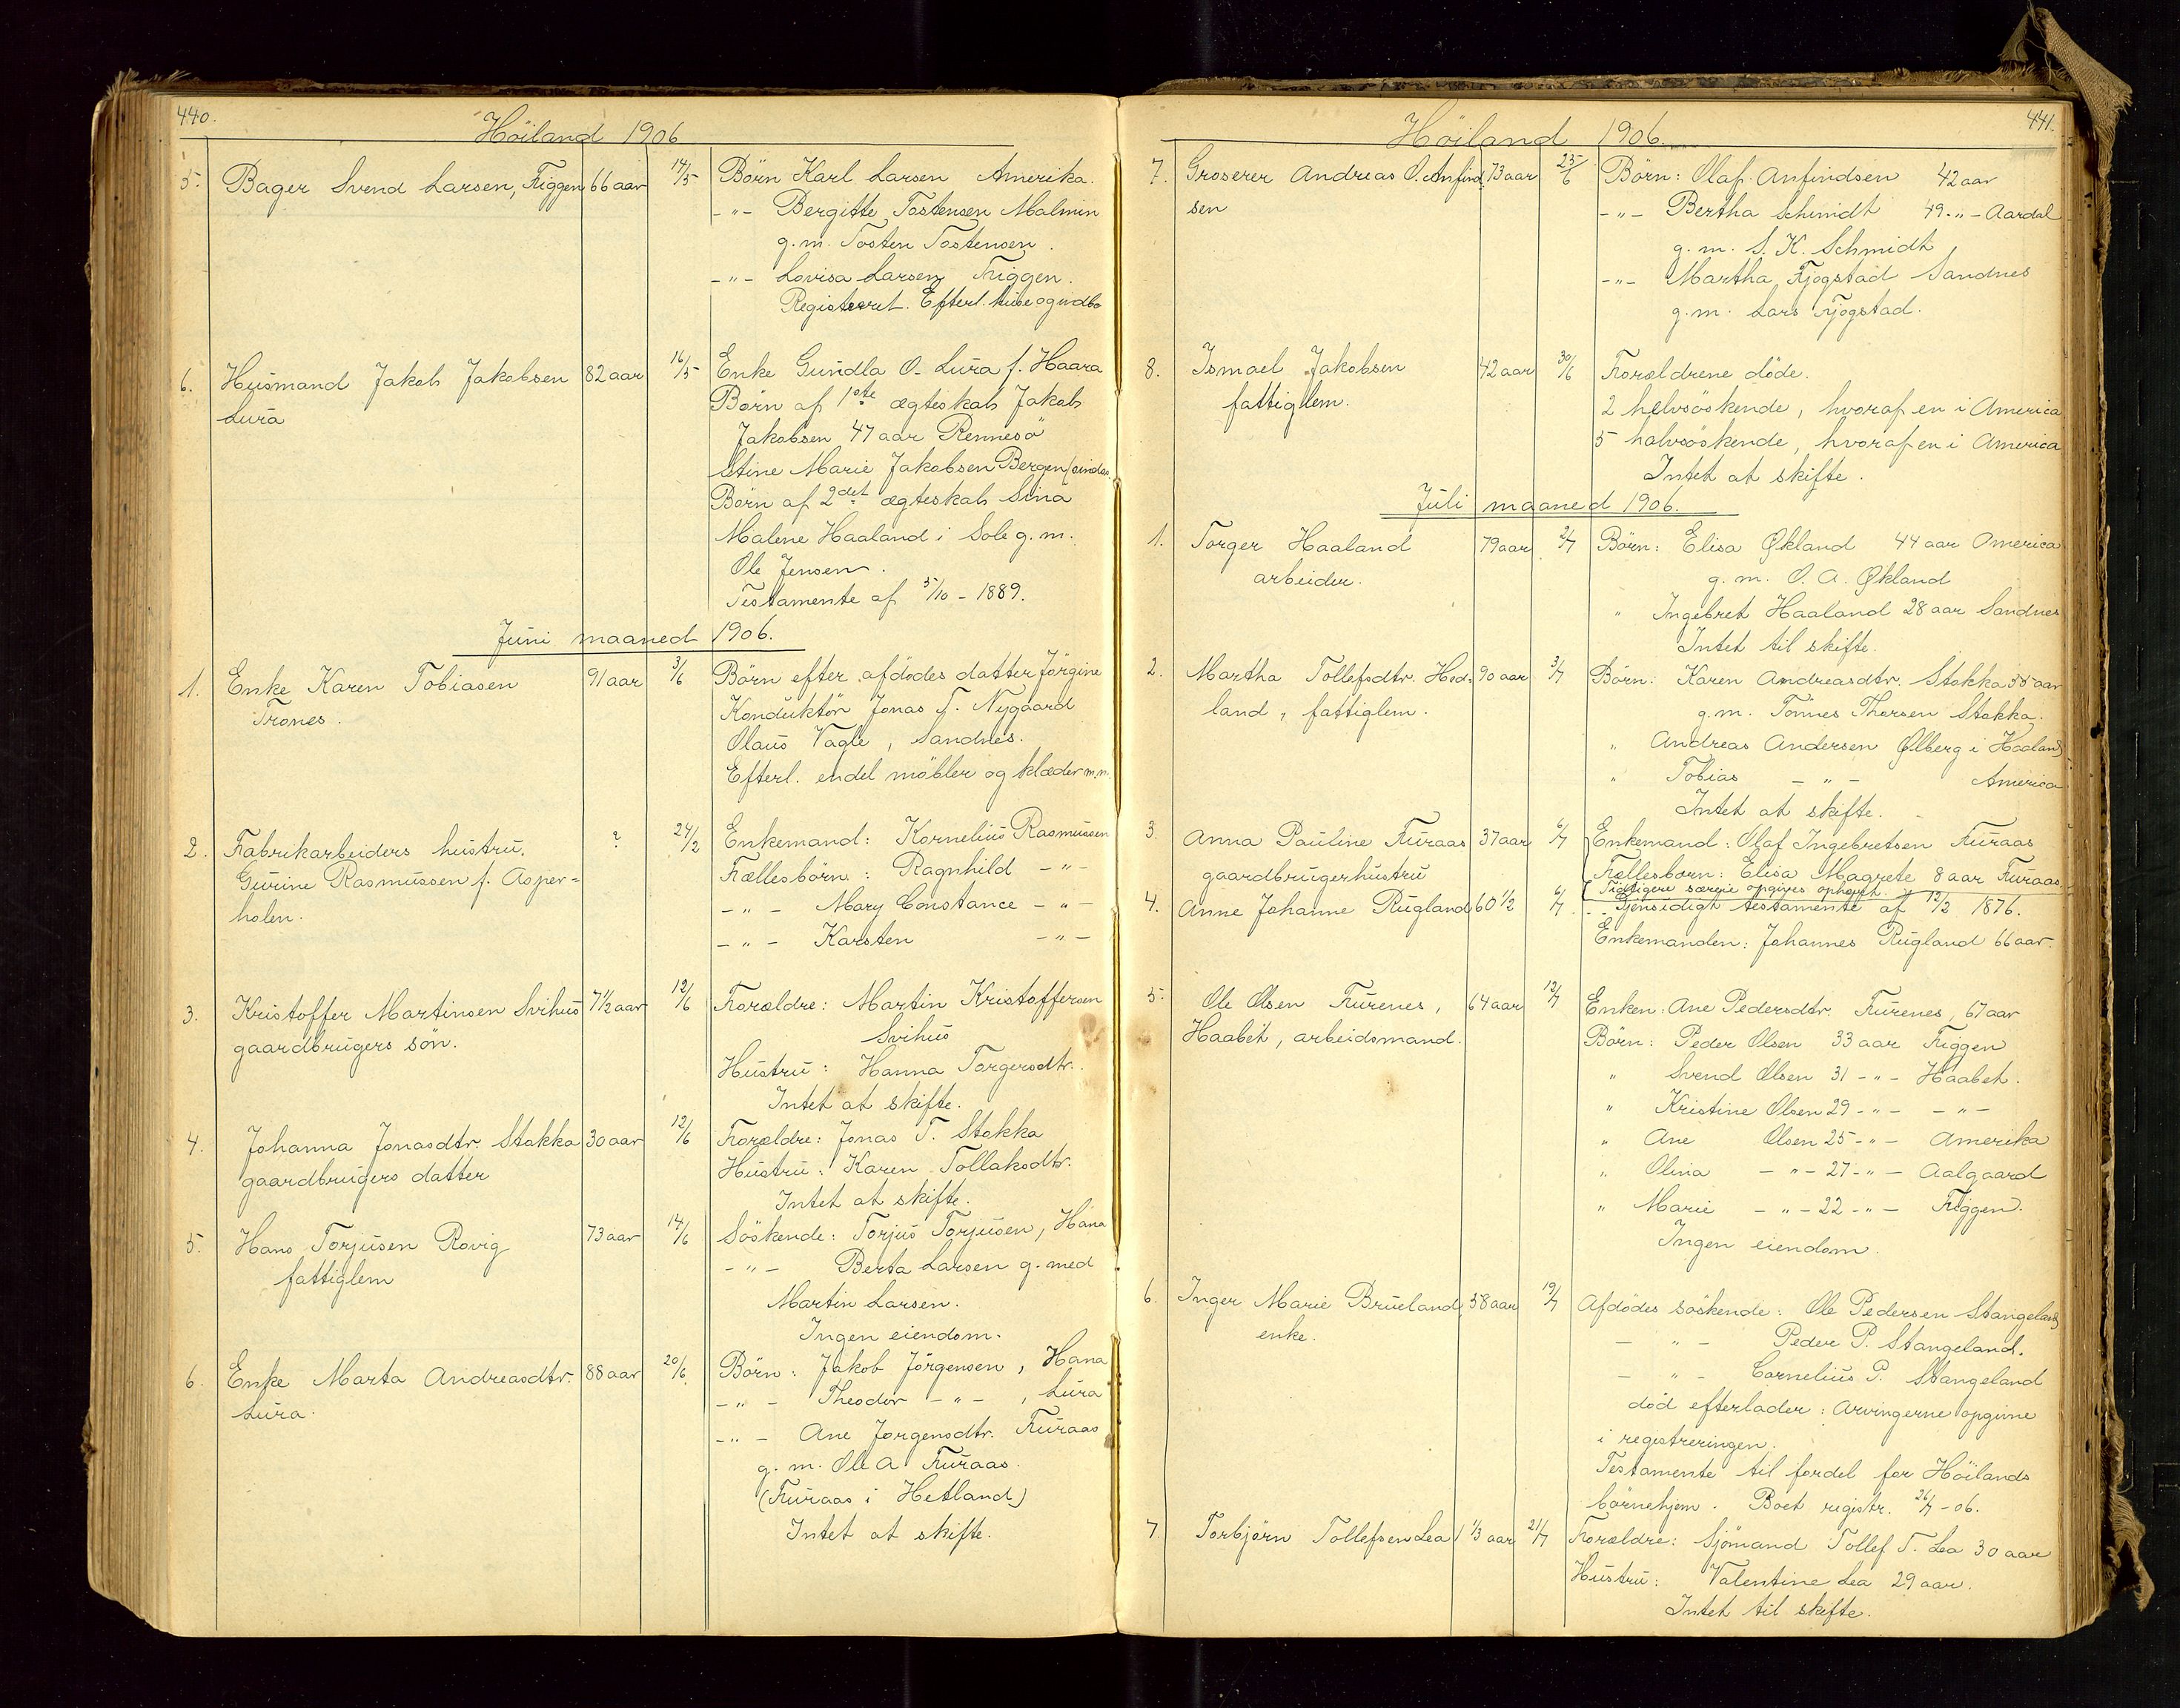 440.
Höiland 1906
5. Bager Svend Larsen, Figgen 66 aar 14/5 Börn Karl Larsen Amerika.
-"- Bergitte Tostensen Malmin
g.m. Tosten Tostensen.
-"- Lovisa Larsen Figgen.
Registeret. Efterl. huse og indbo
6. Husmand Jakob Jakobsen 82 aar 16/5 Enke Gundla O. Lura f. Haara
Lura Börn af 1ste ægteskab Jakob
Jakobsen 47 aar Rennesö
Stine Marie Jakobsen Bergen
Börn af 2det ægteskab Sina
Malene Haaland i Sole g.m.
Ole Jensen.
Testamente af 5/10 - 1889.
Juni maaned 1906.
1. Enke Karen Tobiasen 91 aar 3/6 Börn efter afdödes datter Jörgine
Trones. Konduktör Jonas J. Nygaard
Olaus Vagle, Sandnes.
Efterl. endel möbler og klæder m.m.
2. Fabrikarbeiders hustru. ? 24/2 Enkemand: Kornelius Rasmussen
Gurine Rasmussen f. Asper= Fællesbörn: Ragnhild -"-
holen. -"- Mary Constance -"-
-"- Karsten -"-
3. Kristoffer Martinsen Svihus 7 1/2 aar 12/6 Forældre: Martin Kristoffersen
gaardbrugers sön. Svihus
Hustru: Hanna Torgersdtr.
Intet at skifte.
4. Johanna Jonasdtr. Stokka 30 aar 12/6 Forældre: Jonas T. Stokka
gaardbrugers datter Hustru: Karen Tollaksdtr.
Intet at skifte.
5. Hans Torjusen Rovig 73 aar 14/6 Söskende: Torjus Torjusen, Hana
fattiglem -"- Berta Larsen g. med
Martin Larsen.
Ingen eiendom.
6. Enke Marta Andreasdtr. 88 aar 20/6 Börn: Jakob Jörgensen, Hana
Lura. -"- Theodor -"-, Lura
-"- Ane Jörgensdtr. Furaas
g.m. Ole A Furaas.
(Furaas i Hetland)
Intet at skifte.
441.
Höiland 1906.
7. Groserer Andreas O. Anfind 73 aar 25/6 Börn: Olaf Anfindsen 42 aar
sen -"- Bertha Schmidt 49 -"- Aardal
g.m. S. K. Schmidt
-"- Martha Fjogstad Sandnes
g.m. Lars Fjogstad.
8. Ismael Jakobsen 42 aar 30/6 Forældrene döde.
fattiglem. 2 helsöskende, hvoraf en i America
5 halvsöskende, hvoraf en i America
Intet at skifte.
Juli maaned 1906.
1. Torger Haaland 79 aar 2/7 Börn: Elisa Økland 44 aar America
arbeider. g.m. O. A. Økland
" Ingebret Haaland 28 aar Sandnes
Intet til skifte.
2. Martha Tollefsdtr. Hed= 90 aar 3/7 Börn: Karen Andreasdtr. Stokka 58 aar
land, fattiglem. g.m. Tönnes Thorsen Stokka.
" Andreas Andersen Ølberg i Haaland
" Tobias -"- America
Intet at skifte.
3. Anna Pauline Furaas 37 aar 6/7 Enkemand: Olaf Ingebretsen Furaas
gaardbrugerhustru Fællesbarn: Elisa Magrete 8 aar Furaas.
Tidligere særeie opgives ophævet.
4. Anne Johanne Rugland 60 1/2 6/7 Gjensidigt testamente af 12/2 1876.
Enkemanden: Johannes Rugland 66 aar.
5. Ole Olsen Furenes, 64 aar 12/7 Enken: Ane Pedersdtr. Furenes, 67 aar
Haabet, arbeidsmand. Börn: Peder Olsen 33 aar Figgen
" Svend Olsen 31 -"- Haabet.
" Kristine Olsen 29 -"- -"-
" Ane Olsen 25 -"- Amerika
" Olina -"- 27 -"- Aalgaard
" Marie -"- 22 -"- Figgen.
Ingen eiendom.
6. Inger Marie Brueland, 58 aar 19/7 Afdödes söskende: Ole Pedersen Stangeland
enke. -"- Peder P. Stangeland.
-"- Cornelius P. Stangeland
död efterlader: Arvingerne opgivne
i registreringen.
Testamente til fordel for Höilands
börnehjem. Boet registr. 26/7 - 06.
7. Torbjörn Tollefsen Lea 1 1/3 aar 21/7 Forældre: Sjömand Tollef T. Lea 30 aar
Hustru: Valentine Lea 29 aar.
Intet til skifte.